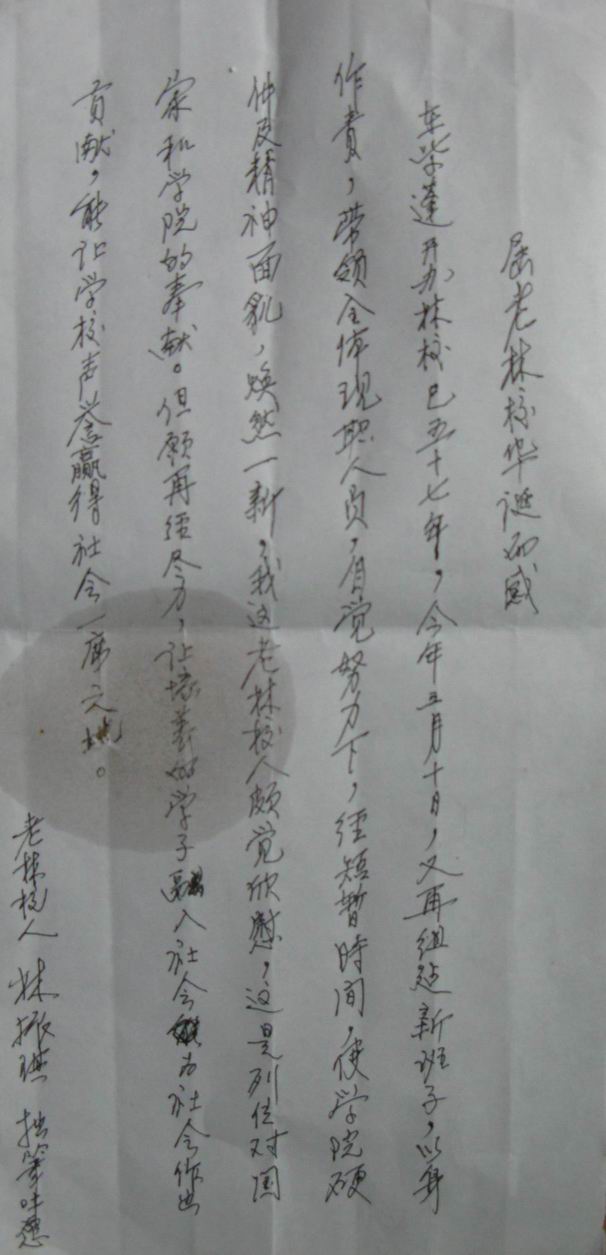 老林校华诞而感
车柴蓬开办林校已五十七年，今年五月十日，又再组建新班子，以身
作责，带领全体现职人员，自觉努力下，经短暂时间，使学院硬
件及精神面貌，焕然一新，我这老林校人颇觉欣慰，这是列位对国
家和学院的奉献。但愿再经尽力，让培养好学子融入社会为社会作出
贡献，能让学校声誉赢得社会一席之地。
老林校人 林振 拙笔